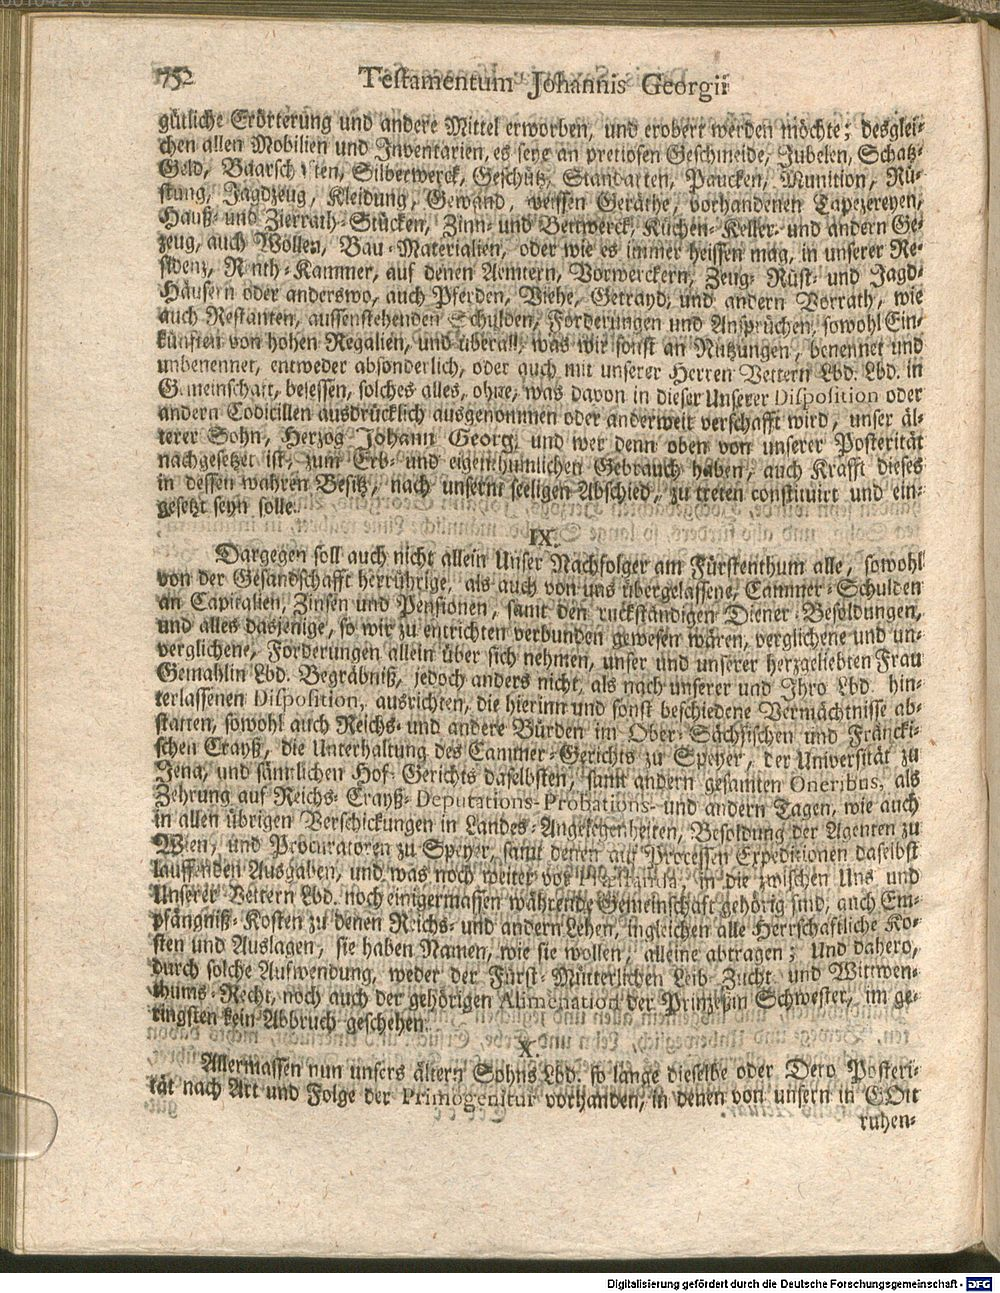 752 Testamentum Johannis Georgii
gütliche Erörterung und andere Mittel erworben, und erobert werden möchte; desglei-
chen allen Mobilien und Inventarien, es seye an pretiosen Geschmeide, Jubelen, Schatz-
Geld, Baarschafften, Silberwerck, Geschütz, Standarten, Paucken, Munition, Rü-
stung, Jagdzeug, Kleidung, Gewand, weissen Geräthe, vorhandenen Tapezereyen,
Hauß- und Zierrath-Stücken, Zinn- und Bettwerck, Küchen- Keller- und andern Ge-
zeug, auch Wollen, Bau-Materialien, oder wie es immer heissen mag, in unserer Re-
sidenz, Renth-Kammer, auf denen Aemtern, Vorwerckern, Zeug- Rüst- und Jagd-
Häusern oder anderswo, auch Pferden, Viehe, Getrayd, und andern Vorrath, wie
auch Restanten, aussenstehenden Schulden, Forderungen und Ansprüchen, sowohl Ein-
künfften von hohen Regalien, und überall, was wir sonst an Nutzungen, benennet und
unbenennet, entweder absonderlich, oder auch mit unserer Herren Vettern Lbd. Lbd. in
Gemeinschaft, besessen, solches alles, ohne, was davon in dieser Unserer Disposition oder
andern Codicillen ausdrücklich ausgenommen oder anderweit verschafft wird, unser äl-
terer Sohn, Herzog Johann Georg, und wer denn oben von unserer Posterität
nachgesetzet ist, zum Erb- und eigenthumlichen Gebrauch haben, auch Krafft dieses
in dessen wahren Besitz, nach unserm seeligen Abschied, zu treten constituirt und ein-
gesetzt seyn solle.
IX.
Dargegen soll auch nicht allein Unser Nachfolger am Fürstenthum alle, sowohl
von der Gesandschafft herrührige, als auch von uns übergelassene, Cammer-Schulden
an Capitalien, Zinsen und Pensionen, samt den ruckständigen Diener-Besoldungen,
und alles dasjenige, so wir zu entrichten verbunden gewesen wären, verglichene und un-
verglichene, Forderungen allein über sich nehmen, unser und unserer herzgeliebten Frau
Gemahlin Lbd. Begräbniß, jedoch anders nicht, als nach unserer und Ihro Lbd. hin-
terlassenen Disposition, ausrichten, die hierinn und sonst beschiedene Vermächtnisse ab-
statten, sowohl auch Reichs- und andere Bürden im Ober-Sächsischen und Fräncki-
schen Crayß, die Unterhaltung des Cammer-Gerichts zu Speyer, der Universität zu
Jena, und sämtlichen Hof-Gerichts daselbsten, samt andern gesamten Oneribus, als
Zehrung auf Reichs- Crayß- Deputations- Probations- und andern Tagen, wie auch
in allen übrigen Verschickungen in Landes-Angelegenheiten, Besoldung der Agenten zu
Wien, und Procuratoren zu Speyer, samt denen auf Processen Expeditionen daselbst
lauffenden Ausgaben, und was noch weiter vor Præstanda, in die zwischen Uns und
Unserer Vettern Lbd. noch einigermassen währende Gemeinschaft gehörig sind, auch Em-
pfängniß-Kosten zu denen Reichs- und andern Lehen, ingleichen alle Herrschaftliche Ko-
sten und Auslagen, sie haben Namen, wie sie wollen, alleine abtragen; Und dahero,
durch solche Aufwendung, weder der Fürst-Mütterlichen Leib-Zucht und Wittwen-
thums-Recht, noch auch der gehörigen Alimentation der Prinzeßin Schwester, im ge-
ringsten kein Abbruch geschehen.
X.
Allermassen nun unsers ältern Sohns Lbd. so lange dieselbe oder Dero Posteri-
tät nach Art und Folge der Primogenitur vorhanden, in denen von unsern in GOtt
ruhen-
Digitalisierung gefördert durch die Deutsche Forschungsgemeinschaft - DFG